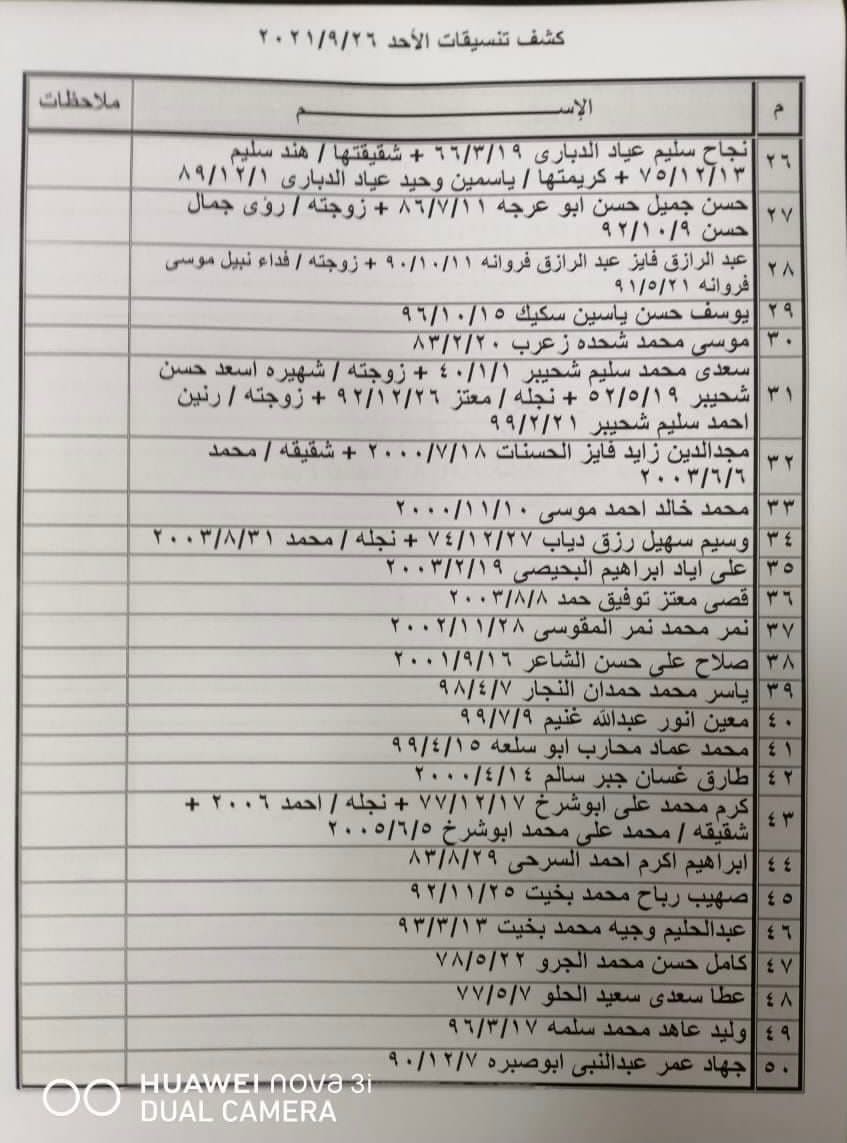 كشف تنسيقات الأحد ٢٠٢١/٩/٢٦
م الإســـــــم ملاحظات
٢٦ نجاح سليم عياد الدبارى ٦٦/٣/١٩ + شقيقتها / هند سليم
٧٥/١٢/١٣ + كريمتها / ياسمين وحيد عياد الدبارى ٨٩/١٢/١
٢٧ حسن جميل حسن ابو عرجه ٨٦/٧/١١ + زوجته / رؤى جمال
حسن ٩٢/١٠/٩
٢٨ عبد الرازق فايز عبد الرازق فروانه ٩٠/١٠/١١ + زوجته / فداء نبيل موسى
فروانه ٩١/٥/٢١
٢٩ يوسف حسن ياسين سكيك ٩٦/١٠/١٥
٣٠ موسى محمد شحده زعرب ٨٣/٢/٢٠
٣١ سعدى محمد سليم شحيبر ٤٠/١/١ + زوجته / شهيره اسعد حسن
شحيبر ٥٢/٥/١٩ + نجله / معتز ٩٢/١٢/٢٦ + زوجته / رنين
احمد سليم شحيبر ٩٩/٢/٢١
٣٢ مجدالدين زايد فايز الحسنات ٢٠٠٠/٧/١٨ + شقيقه / محمد
٢٠٠٣/٦/٦
٣٣ محمد خالد احمد موسى ٢٠٠٠/١١/١٠
٣٤ وسيم سهيل رزق دياب ٧٤/١٢/٢٧ + نجله / محمد ٢٠٠٣/٨/٣١
٣٥ على اياد ابراهيم البحيصى ٢٠٠٣/٢/١٩
٣٦ قصى معتز توفيق حمد ٢٠٠٣/٨/٨
٣٧ نمر محمد نمر المقوسى ٢٠٠٢/١١/٢٨
٣٨ صلاح على حسن الشاعر ٢٠٠١/٩/١٦
٣٩ ياسر محمد حمدان النجار ٩٨/٤/٧
٤٠ معين انور عبدالله غنيم ٩٩/٧/٩
٤١ محمد عماد محارب ابو سلعه ٩٩/٤/١٥
٤٢ طارق غسان جبر سالم ٢٠٠٠/٤/١٤
٤٣ كرم محمد على ابوشرخ ٧٧/١٢/١٧ + نجله / احمد ٢٠٠٦ +
شقيقه / محمد على محمد ابوشرخ ٢٠٠٥/٦/٥
٤٤ ابراهيم اكرم احمد السرحى ٨٣/٨/٢٩
٤٥ صهيب رباح محمد بخيت ٩٢/١١/٢٥
٤٦ عبدالحليم وجيه محمد بخيت ٩٣/٣/١٣
٤٧ كامل حسن محمد الجرو ٧٨/٥/٢٢
٤٨ عطا سعدى سعيد الحلو ٧٧/٥/٧
٤٩ وليد عاهد محمد سلمه ٩٦/٣/١٧
٥٠ جهاد عمر عبدالنبى ابوصبره ٩٠/١٢/٧
HUAWEI nova 3i
DUAL CAMERA